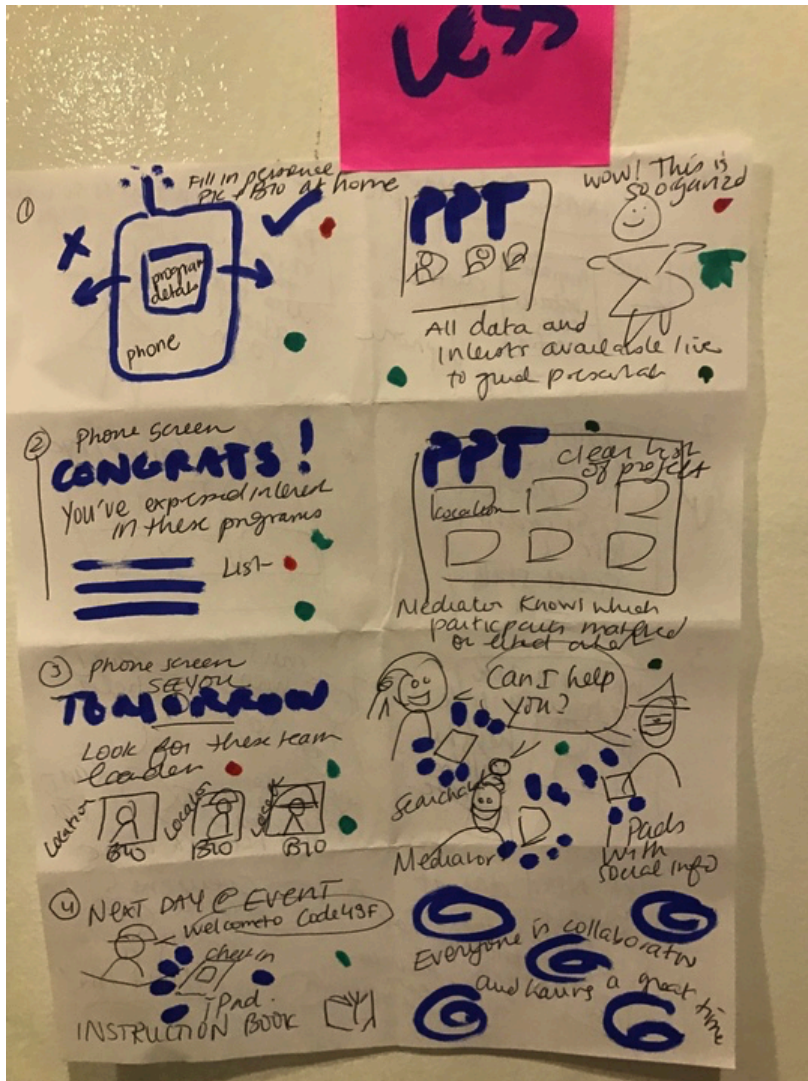 Less
①
Fill in
Pic + Bio at home
program
details
phone
PPT
WOW! This is
so organized
All data and
interests available live
to guide presentation
② Phone screen
CONGRATS!
You've expressed interest
in these programs
List
PPT
clear list
of project
Location
Mediator knows which
participants matched
or
③ Phone screen
SEE YOU
TOMORROW
Look for these team
leaders
Location
Location
BIO
BIO
BIO
Can I help
you?
Mediator
iPads
with
social info
④ NEXT DAY @ EVENT
Welcome to Code4SF
check in
iPad.
INSTRUCTION BOOK
Everyone is collaborating
and having a great time